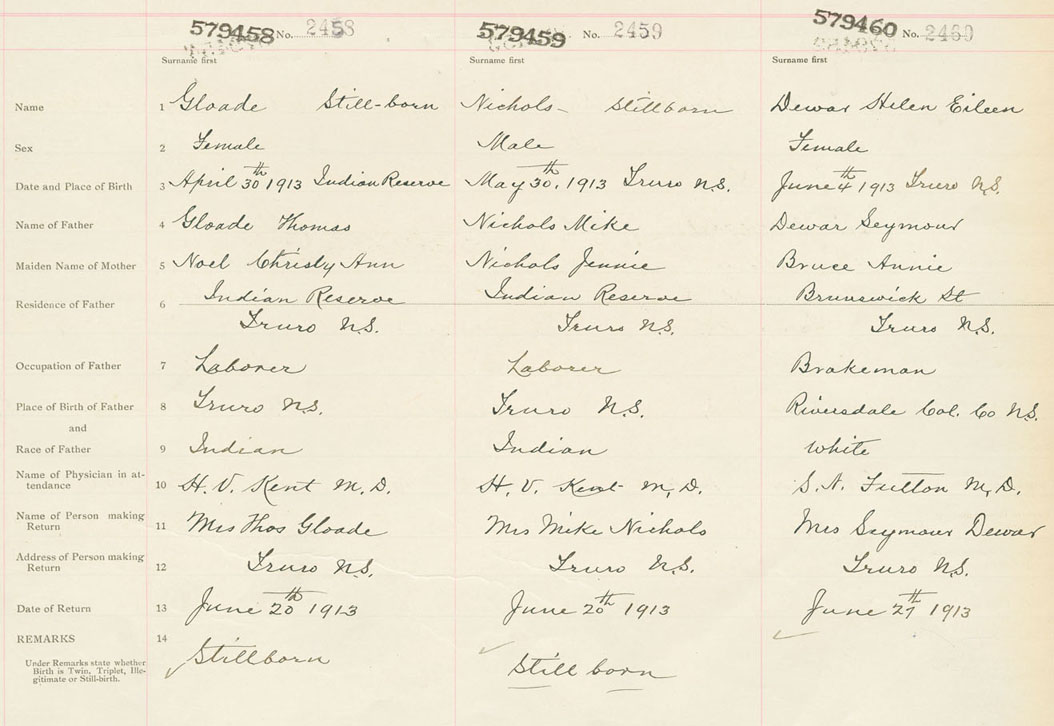 579458 No. 2458 579459 No. 2459 579460 No. 2460
Surname first Surname first Surname first
Name 1 Gloade Still-born Nichols- Stillborn Dewar Helen Eileen
Sex 2 Female Male Female
Date and Place of Birth 3 April 30th 1913 Indian Reserve May 30th, 1913 Truro N.S. June 4th 1913 Truro N.S.
Name of Father 4 Gloade Thomas Nichols Mike Dewar Seymour
Maiden Name of Mother 5 Noel Christy Ann Nichols Jennie Bruce Annie
Residence of Father 6 Indian Reserve Indian Reserve Brunswick St
Truro N.S. Truro N.S. Truro N.S.
Occupation of Father 7 Laborer Laborer Brakeman
Place of Birth of Father 8 Truro N.S. Truro N.S. Riversdale Col. Co N.S.
and
Race of Father 9 Indian Indian White
Name of Physician in at-
tendance 10 H. V. Kent M.D. H. V. Kent M.D. M.D.
Name of Person making
Return 11 Mrs Thos Gloade Mrs Mike Nichols Mrs Seymour Dewar
Address of Person making
Return 12 Truro N.S. Truro N.S. Truro N.S.
Date of Return 13 June 20th 1913 June 20th 1913 June 27th 1913
REMARKS 14 Stillborn Still born
Under Remarks state whether
Birth is Twin, Triplet, Ille-
gitimate or Still-birth.